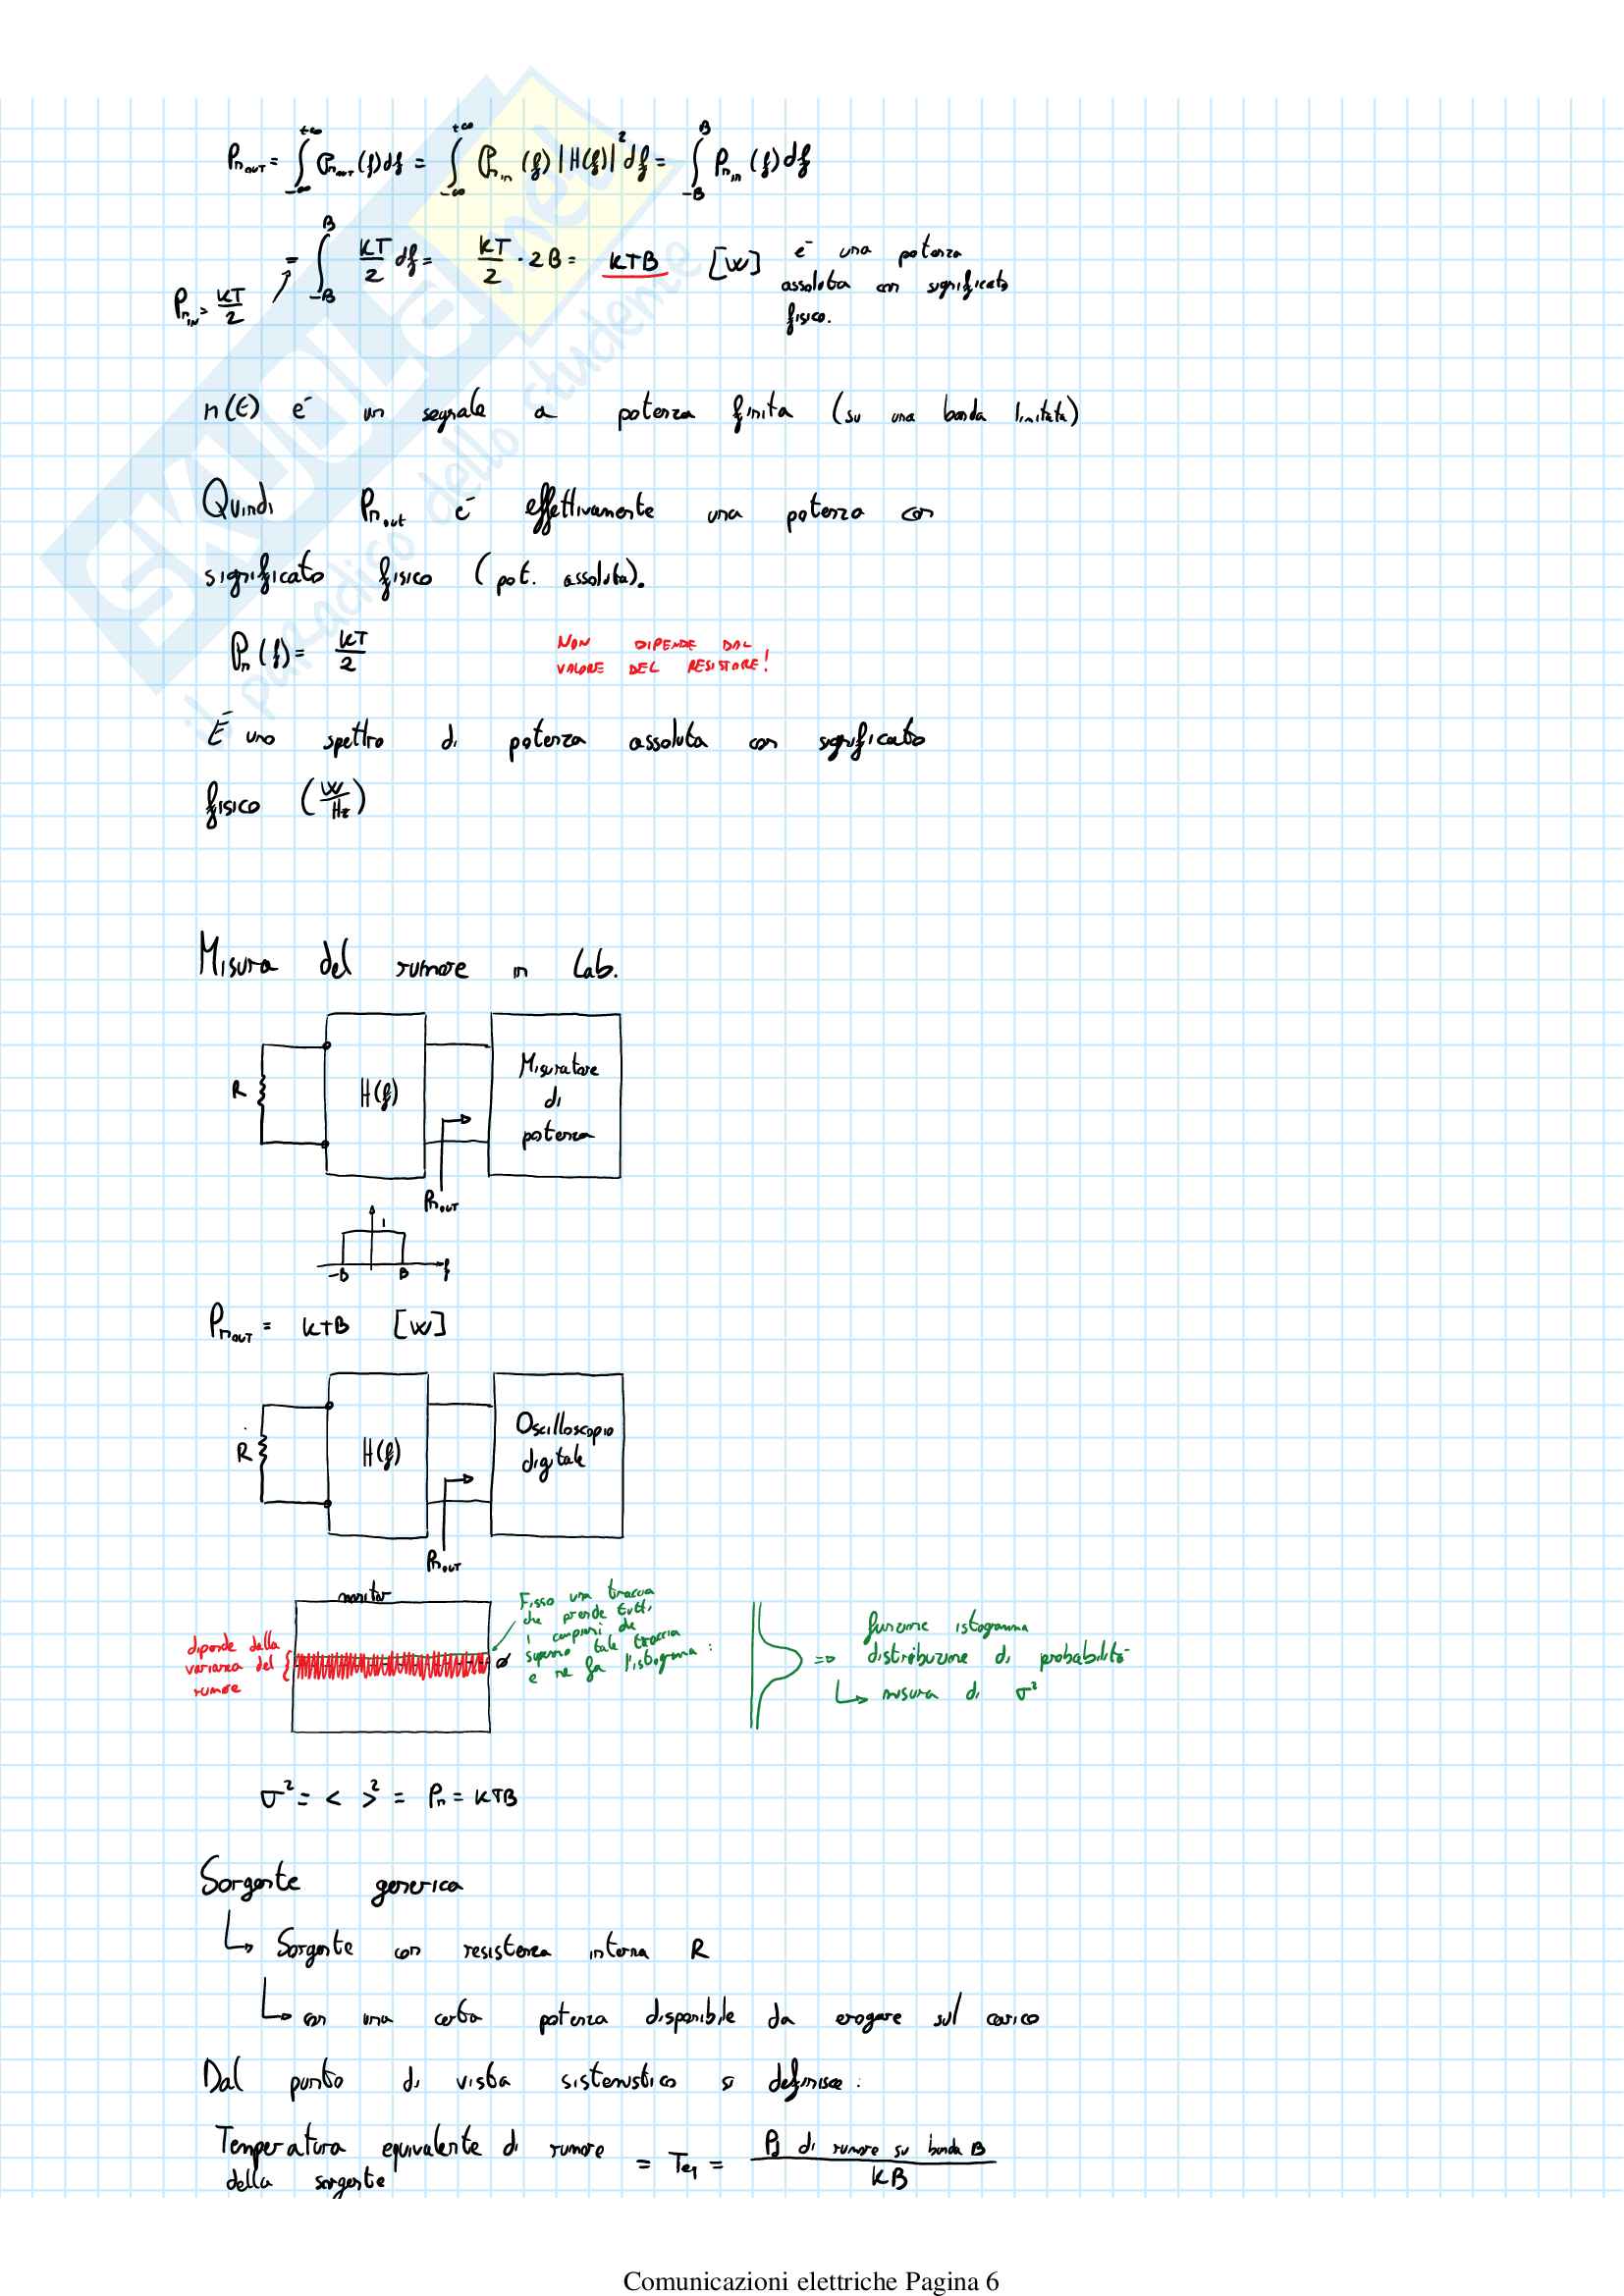 P_nOUT = ∫_{-∞}^{+∞} P_nOUT (f) df = ∫_{-∞}^{+∞} P_nin (f) |H(f)|² df = ∫_{-B}^{B} P_nin (f) df
= ∫_{-B}^{B} KT/2 df = KT/2 · 2B = KTB [W] è una potenza
assoluta con significato
fisico.
P_nIN = KT/2
n(t) è un segnale a potenza finita (su una banda limitata)
Quindi P_nout è effettivamente una potenza con
significato fisico (pot. assoluta).
P_n (f) = KT/2
NON DIPENDE DAL
VALORE DEL RESISTORE!
È uno spettro di potenza assoluta con significato
fisico (W/Hz)
Misura del rumore in Lab.
R
H(f)
Misuratore
di
potenza
P_nOUT
1
-B B f
P_nOUT = KTB [W]
R
H(f)
Oscilloscopio
digitale
P_nOUT
monitor
dipende dalla
varianza del
rumore
0
Fisso una traccia
che prende tutti
i campioni che
superano tale traccia
e ne fa l'istogramma:
=> funzione istogramma
distribuzione di probabilità
↳ misura di σ²
σ² = < >² = P_n = KTB
Sorgente generica
↳ Sorgente con resistenza interna R
↳ con una certa potenza disponibile da erogare sul carico
Dal punto di vista sistemistico si definisce:
Temperatura equivalente di rumore
della sorgente
= T_eq = P_d di rumore su banda B / KB
Comunicazioni elettriche Pagina 6
SKUOLA.net
il paradiso dello studente